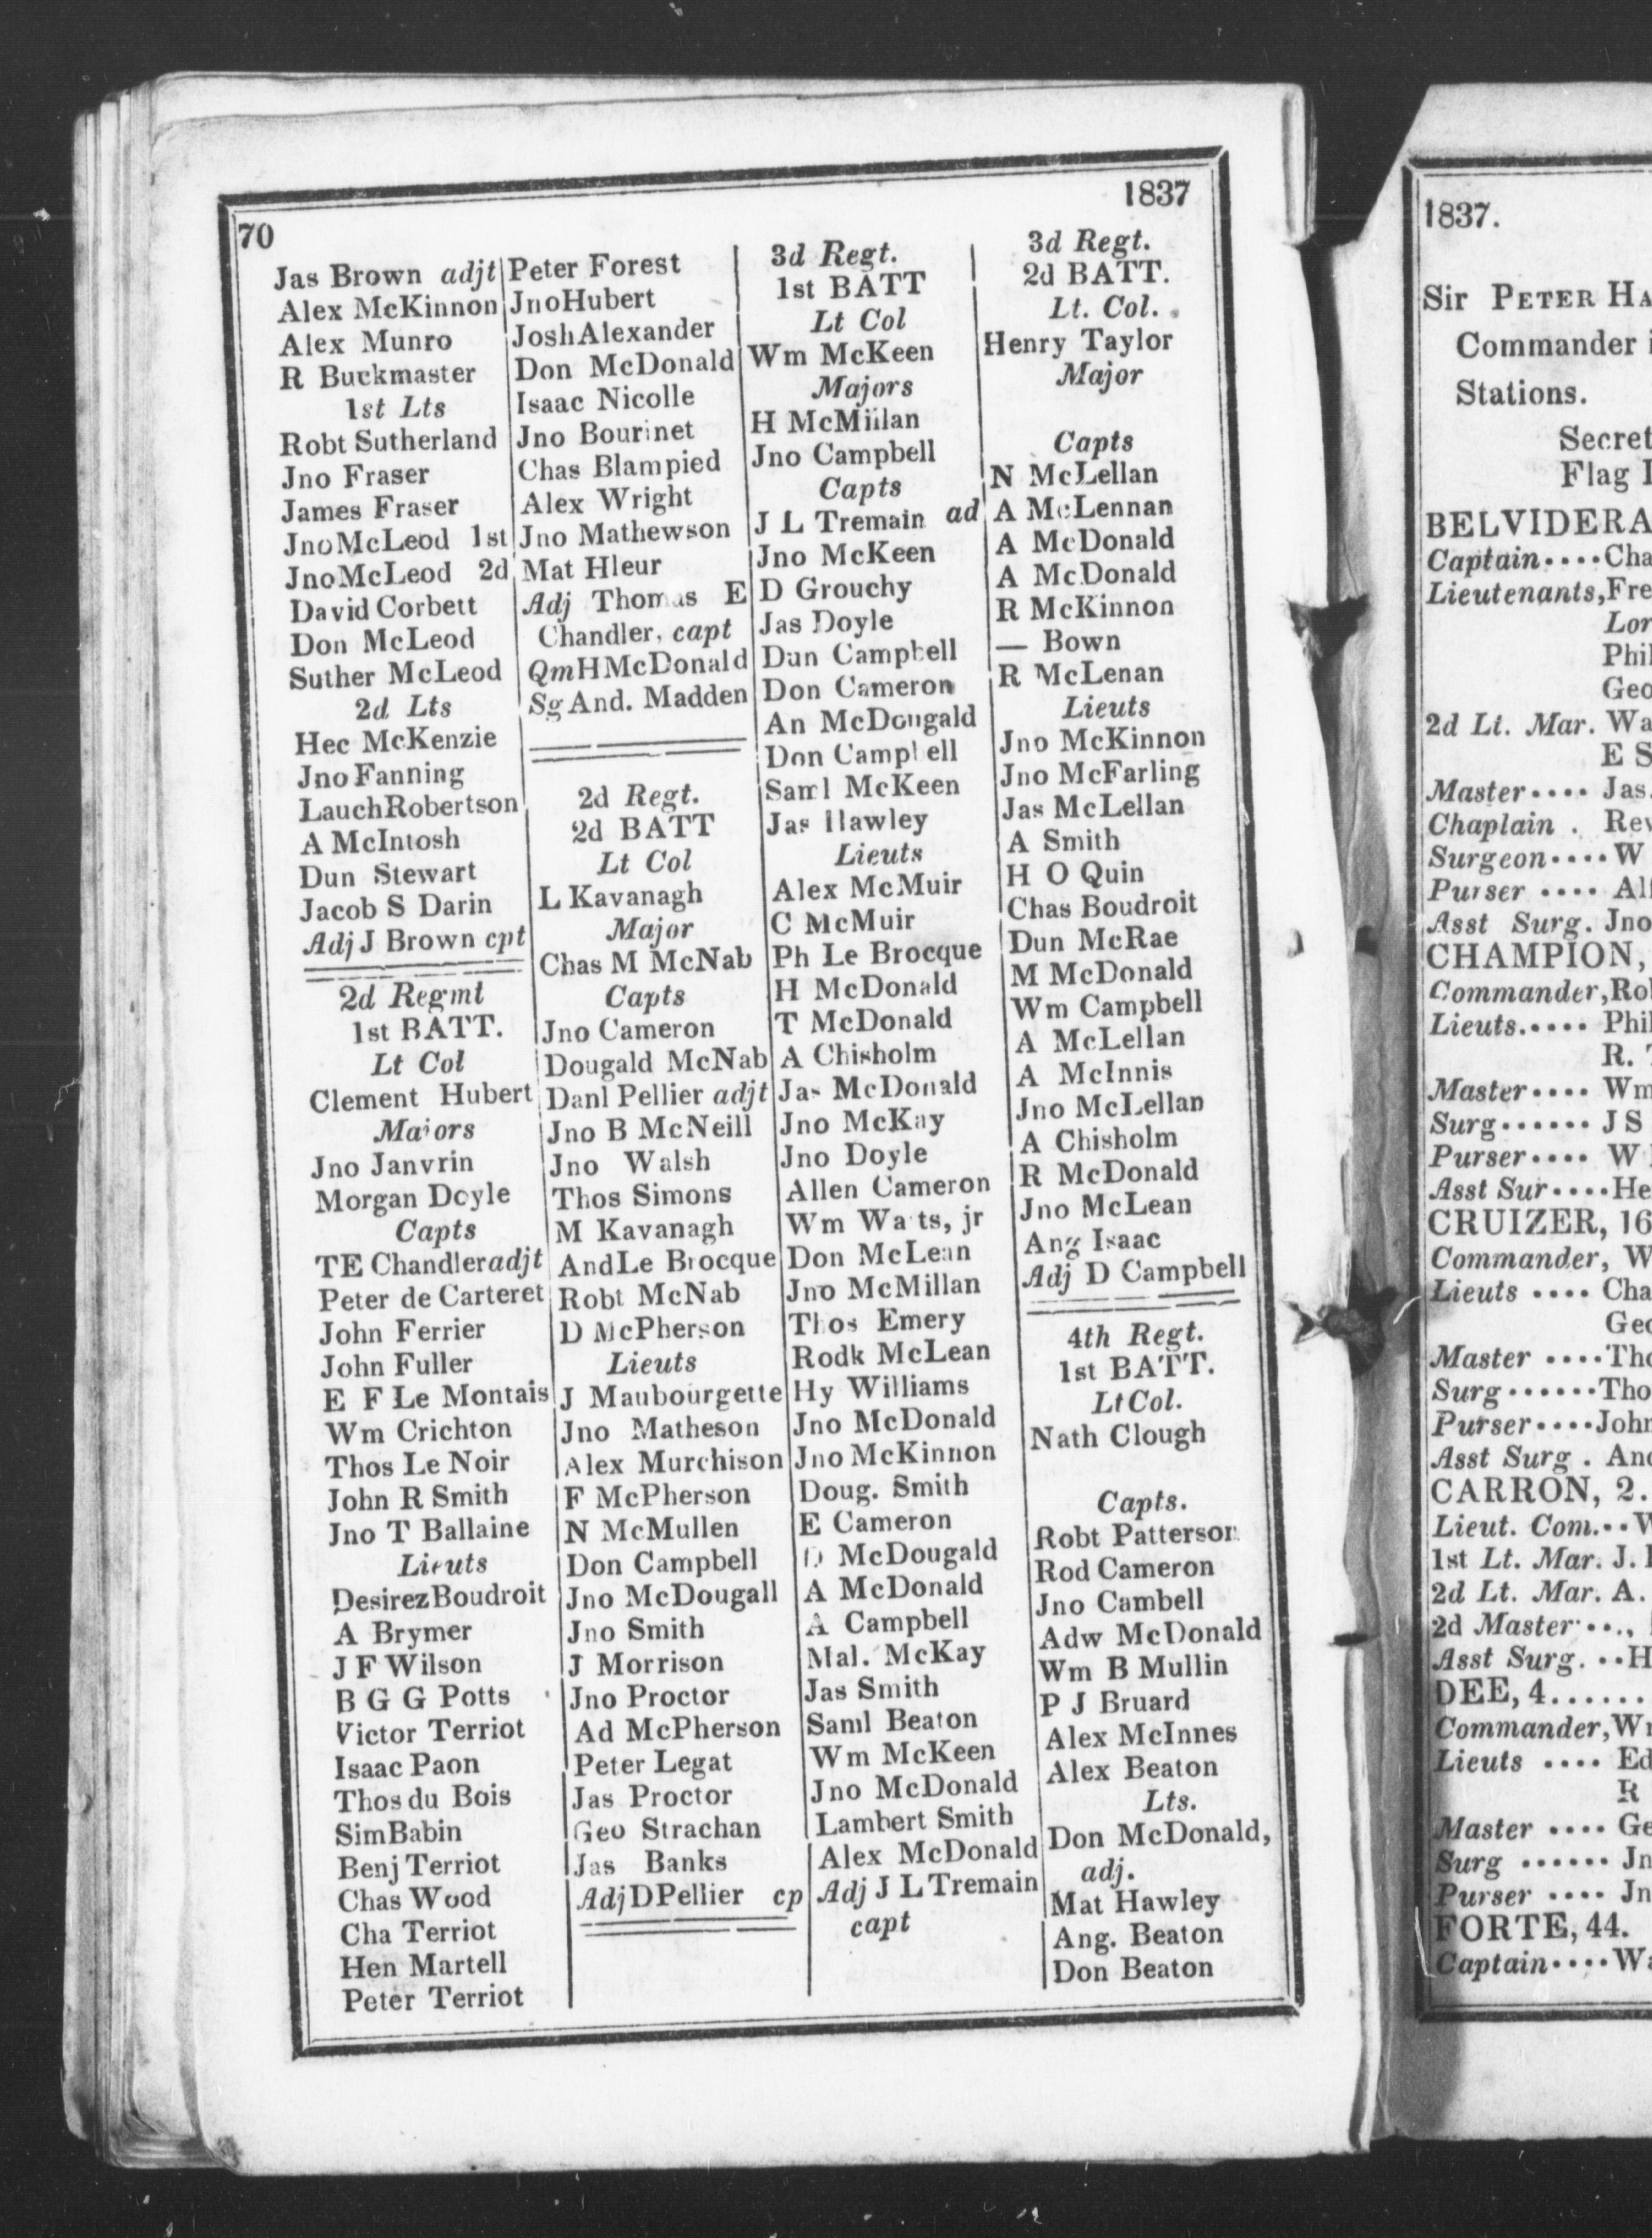 70
1837
Jas Brown adjt
Alex McKinnon
Alex Munro
R Buckmaster
1st Lts
Robt Sutherland
Jno Fraser
James Fraser
Jno McLeod 1st
Jno McLeod 2d
David Corbett
Don McLeod
Suther McLeod
2d Lts
Hec McKenzie
Jno Fanning
Lauch Robertson
A McIntosh
Dun Stewart
Jacob S Darin
Adj J Brown cpt
2d Regmt
1st BATT.
Lt Col
Clement Hubert
Majors
Jno Janvrin
Morgan Doyle
Capts
TE Chandler adjt
Peter de Carteret
John Ferrier
John Fuller
E F Le Montais
Wm Crichton
Thos Le Noir
John R Smith
Jno T Ballaine
Lieuts
Desirez Boudroit
A Brymer
J F Wilson
B G G Potts
Victor Terriot
Isaac Paon
Thos du Bois
Sim Babin
Benj Terriot
Chas Wood
Cha Terriot
Hen Martell
Peter Terriot
Peter Forest
Jno Hubert
Josh Alexander
Don McDonald
Isaac Nicolle
Jno Bourinet
Chas Blampied
Alex Wright
Jno Mathewson
Mat Hleur
Adj Thomas E
Chandler, capt
Qm H McDonald
Sg And. Madden
2d Regt.
2d BATT
Lt Col
L Kavanagh
Major
Chas M McNab
Capts
Jno Cameron
Dougald McNab
Danl Pellier adjt
Jno B McNeill
Jno Walsh
Thos Simons
M Kavanagh
And Le Brocque
Robt McNab
D McPherson
Lieuts
J Maubourgette
Jno Matheson
Alex Murchison
F McPherson
N McMullen
Don Campbell
Jno McDougall
Jno Smith
J Morrison
Jno Proctor
Ad McPherson
Peter Legat
Jas Proctor
Geo Strachan
Jas Banks
Adj D Pellier cp
3d Regt.
1st BATT
Lt Col
Wm McKeen
Majors
H McMillan
Jno Campbell
Capts
J L Tremain ad
Jno McKeen
D Grouchy
Jas Doyle
Dun Campbell
Don Cameron
An McDougald
Don Campbell
Saml McKeen
Jas Hawley
Lieuts
Alex McMuir
C McMuir
Ph Le Brocque
H McDonald
T McDonald
A Chisholm
Jas McDonald
Jno McKay
Jno Doyle
Allen Cameron
Wm Watts, jr
Don McLean
Jno McMillan
Thos Emery
Rodk McLean
Hy Williams
Jno McDonald
Jno McKinnon
Doug. Smith
E Cameron
D McDougald
A McDonald
A Campbell
Mal. McKay
Jas Smith
Saml Beaton
Wm McKeen
Jno McDonald
Lambert Smith
Alex McDonald
Adj J L Tremain
capt
3d Regt.
2d BATT.
Lt. Col.
Henry Taylor
Major
Capts
N McLellan
A McLennan
A McDonald
A McDonald
R McKinnon
— Bown
R McLenan
Lieuts
Jno McKinnon
Jno McFarling
Jas McLellan
A Smith
H O Quin
Chas Boudroit
Dun McRae
M McDonald
Wm Campbell
A McLellan
A McInnis
Jno McLellan
A Chisholm
R McDonald
Jno McLean
Ang Isaac
Adj D Campbell
4th Regt.
1st BATT.
Lt Col.
Nath Clough
Capts.
Robt Patterson
Rod Cameron
Jno Cambell
Adw McDonald
Wm B Mullin
P J Bruard
Alex McInnes
Alex Beaton
Lts.
Don McDonald,
adj.
Mat Hawley
Ang. Beaton
Don Beaton
1837.
Sir PETER HA
Commander i
Stations.
Secret
Flag
BELVIDERA
Captain....Cha
Lieutenants, Fre
Lor
Phil
Geo
2d Lt. Mar. Wa
E S
Master.... Jas.
Chaplain . Rev
Surgeon....W
Purser .... Alf
Asst Surg. Jno
CHAMPION,
Commander, Rob
Lieuts..... Phil
R.
Master.... Wm
Surg...... J S
Purser.... W
Asst Sur....He
CRUIZER, 16
Commander, W
Lieuts .... Cha
Geo
Master ....Tho
Surg......Tho
Purser....John
Asst Surg . And
CARRON, 2.
Lieut. Com...W
1st Lt. Mar. J.
2d Lt. Mar. A.
2d Master....,
Asst Surg. ..H
DEE, 4......
Commander, Wm
Lieuts .... Ed
R
Master .... Ge
Surg ...... Jn
Purser .... Jn
FORTE, 44.
Captain....Wa